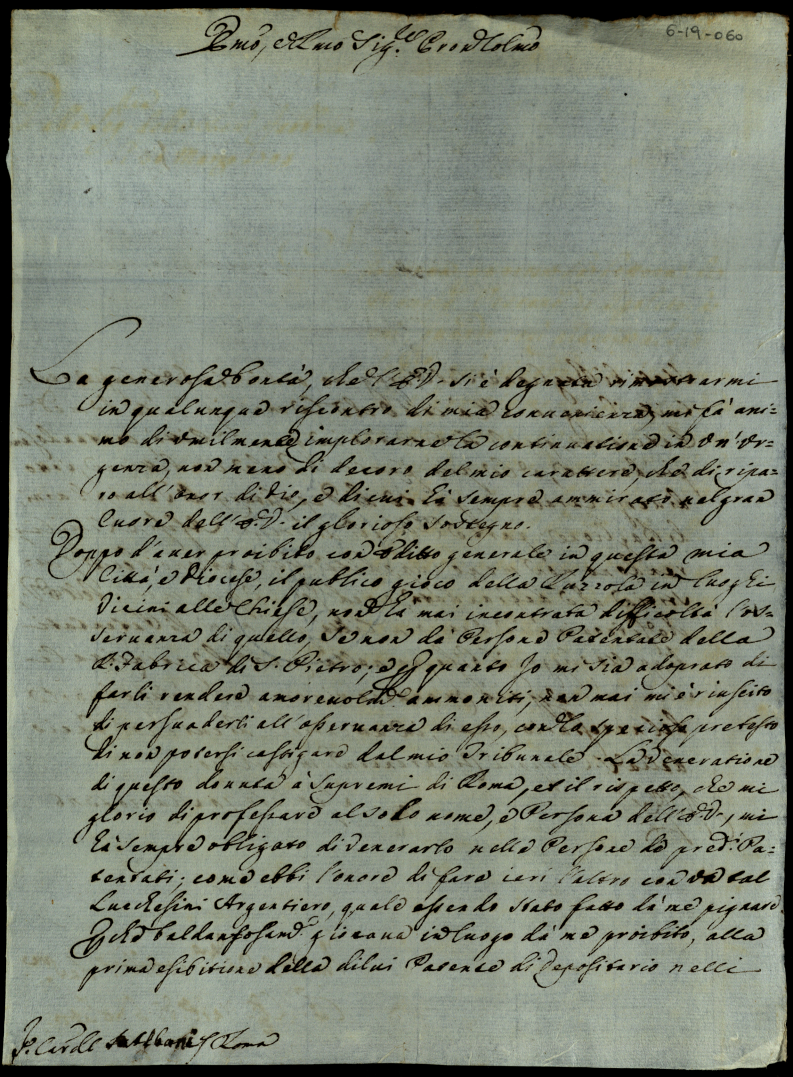 6-19-060
Emo, e Rmo Sig.re Pron Colmo
La generosa bontà, che l'E.V. si è degnata rimostrarmi
in qualunque riscontro di mia convenienza, mi fà ani-
mo di umilmente implorarne la continuatione in un'ur-
genza, non meno di decoro del mio carattere, che di ripa-
ro all'onor di Dio, e di cui hà sempre ammirato nel gran
Cuore dell'E.V. il glorioso sostegno.
Doppo d'aver proibito con Editto generale in questa mia
Città, e Diocese, il publico gioco della Ruzzola in luoghi
vicini alle Chiese, non hà mai incontrata difficoltà l'os-
servanza di quello, se non dà Persone Patentate della
R. Fabrica di S. Pietro; e per quanto Io mi sia adoprato di
farli rendere amorevolm.e ammoniti, non mai mi è riuscito
di persuaderli all'osservanza di esso, con lo specioso pretesto
di non potersi castigare dal mio Tribunale. La veneratione
di questo dovuta à Supremi di Roma, et il rispetto, che mi
glorio di professare al solo nome, e Persona dell'E.V., mi
hà sempre obligato di venerarlo nelle Persone de pred.i Pa-
tentati; come ebbi l'onore di fare ieri l'altro con un tal
Lucchesini Argentiero, quale essendo stato fatto dà me pignare
perche baldanzosam.e giocava in luogo dà me proibito, alla
prima esibitione della di lui Patente di Depositario nelli
Sr. Card. Albani Roma